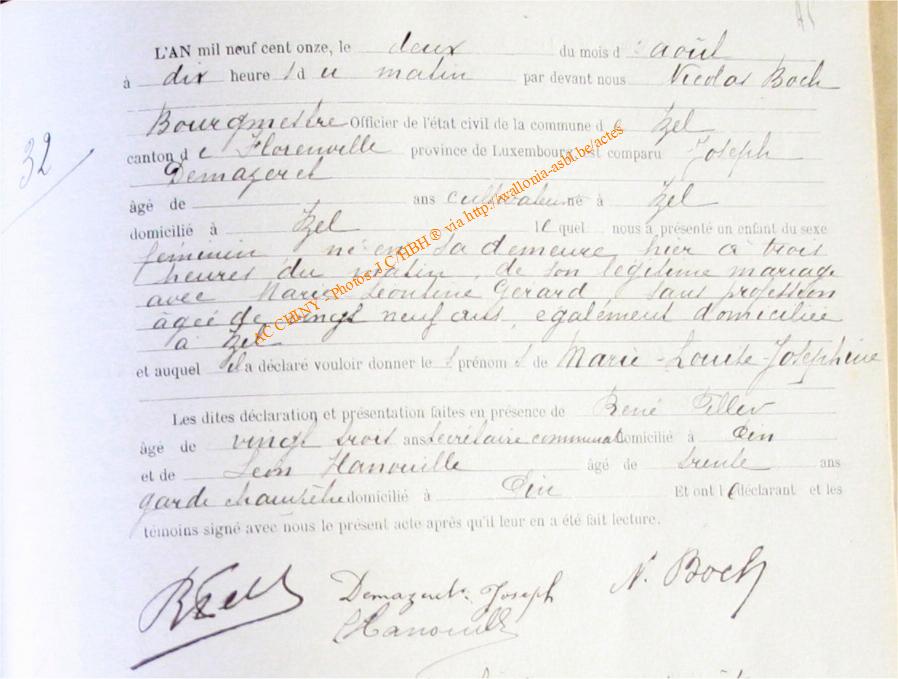 L'AN mil neuf cent onze, le deux du mois d'août
à dix heures du matin par devant nous Nicolas Boch
Bourgmestre Officier de l'état civil de la commune de Izel
32
canton de Florenville province de Luxembourg est comparu Joseph
Demazeret
âgé de ans cultivateur né à Izel
domicilié à Izel lequel nous a présenté un enfant du sexe
féminin né en sa demeure hier à trois
heures du matin, de son légitime mariage
avec Marie Léontine Gérard sans profession
âgée de vingt neuf ans, également domiciliée
à Izel
et auquel il a déclaré vouloir donner les prénoms de Marie-Louise-Joséphine
Les dites déclaration et présentation faites en présence de René
âgé de vingt trois ans secrétaire communal domicilié à Pin
et de Léon Hanouille âgé de trente ans
garde champêtre domicilié à Pin Et ont le déclarant et les
témoins signé avec nous le présent acte après qu'il leur en a été fait lecture.
Demazeret Joseph N. Boch
Hanouille
ACCHINY - Photos J.C/HBH ® via http://wallonia-asbl.be/actes